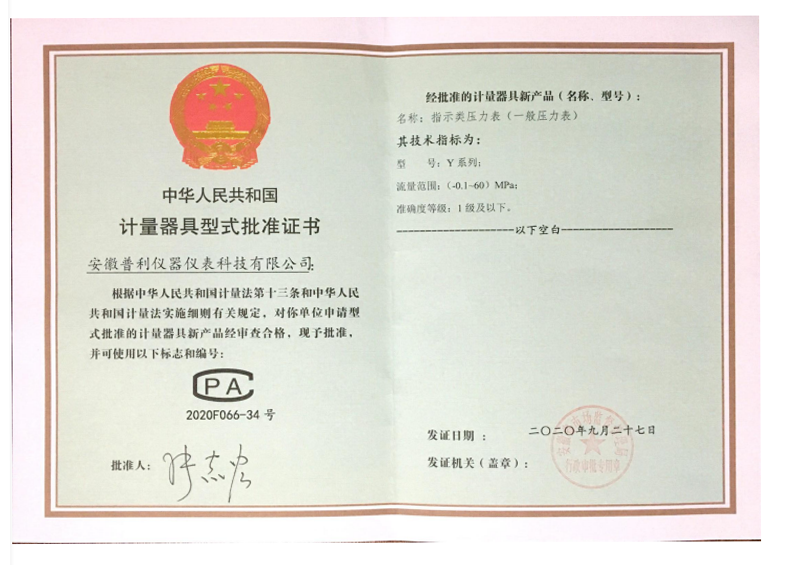 中华人民共和国
计量器具型式批准证书
安徽普利仪器仪表科技有限公司:
根据中华人民共和国计量法第十三条和中华人民
共和国计量法实施细则有关规定，对你单位申请型
式批准的计量器具新产品经审查合格，现予批准，
并可使用以下标志和编号:
CPA
2020F066-34 号
批准人:
经批准的计量器具新产品（名称、型号）:
名称: 指示类压力表（一般压力表）
其技术指标为:
型 号: Y 系列;
流量范围: (-0.1~60) MPa;
准确度等级: 1 级及以下。
--------------------以下空白--------------------
发证日期 : 二〇二〇年九月二十七日
发证机关（盖章）:
行政审批专用章